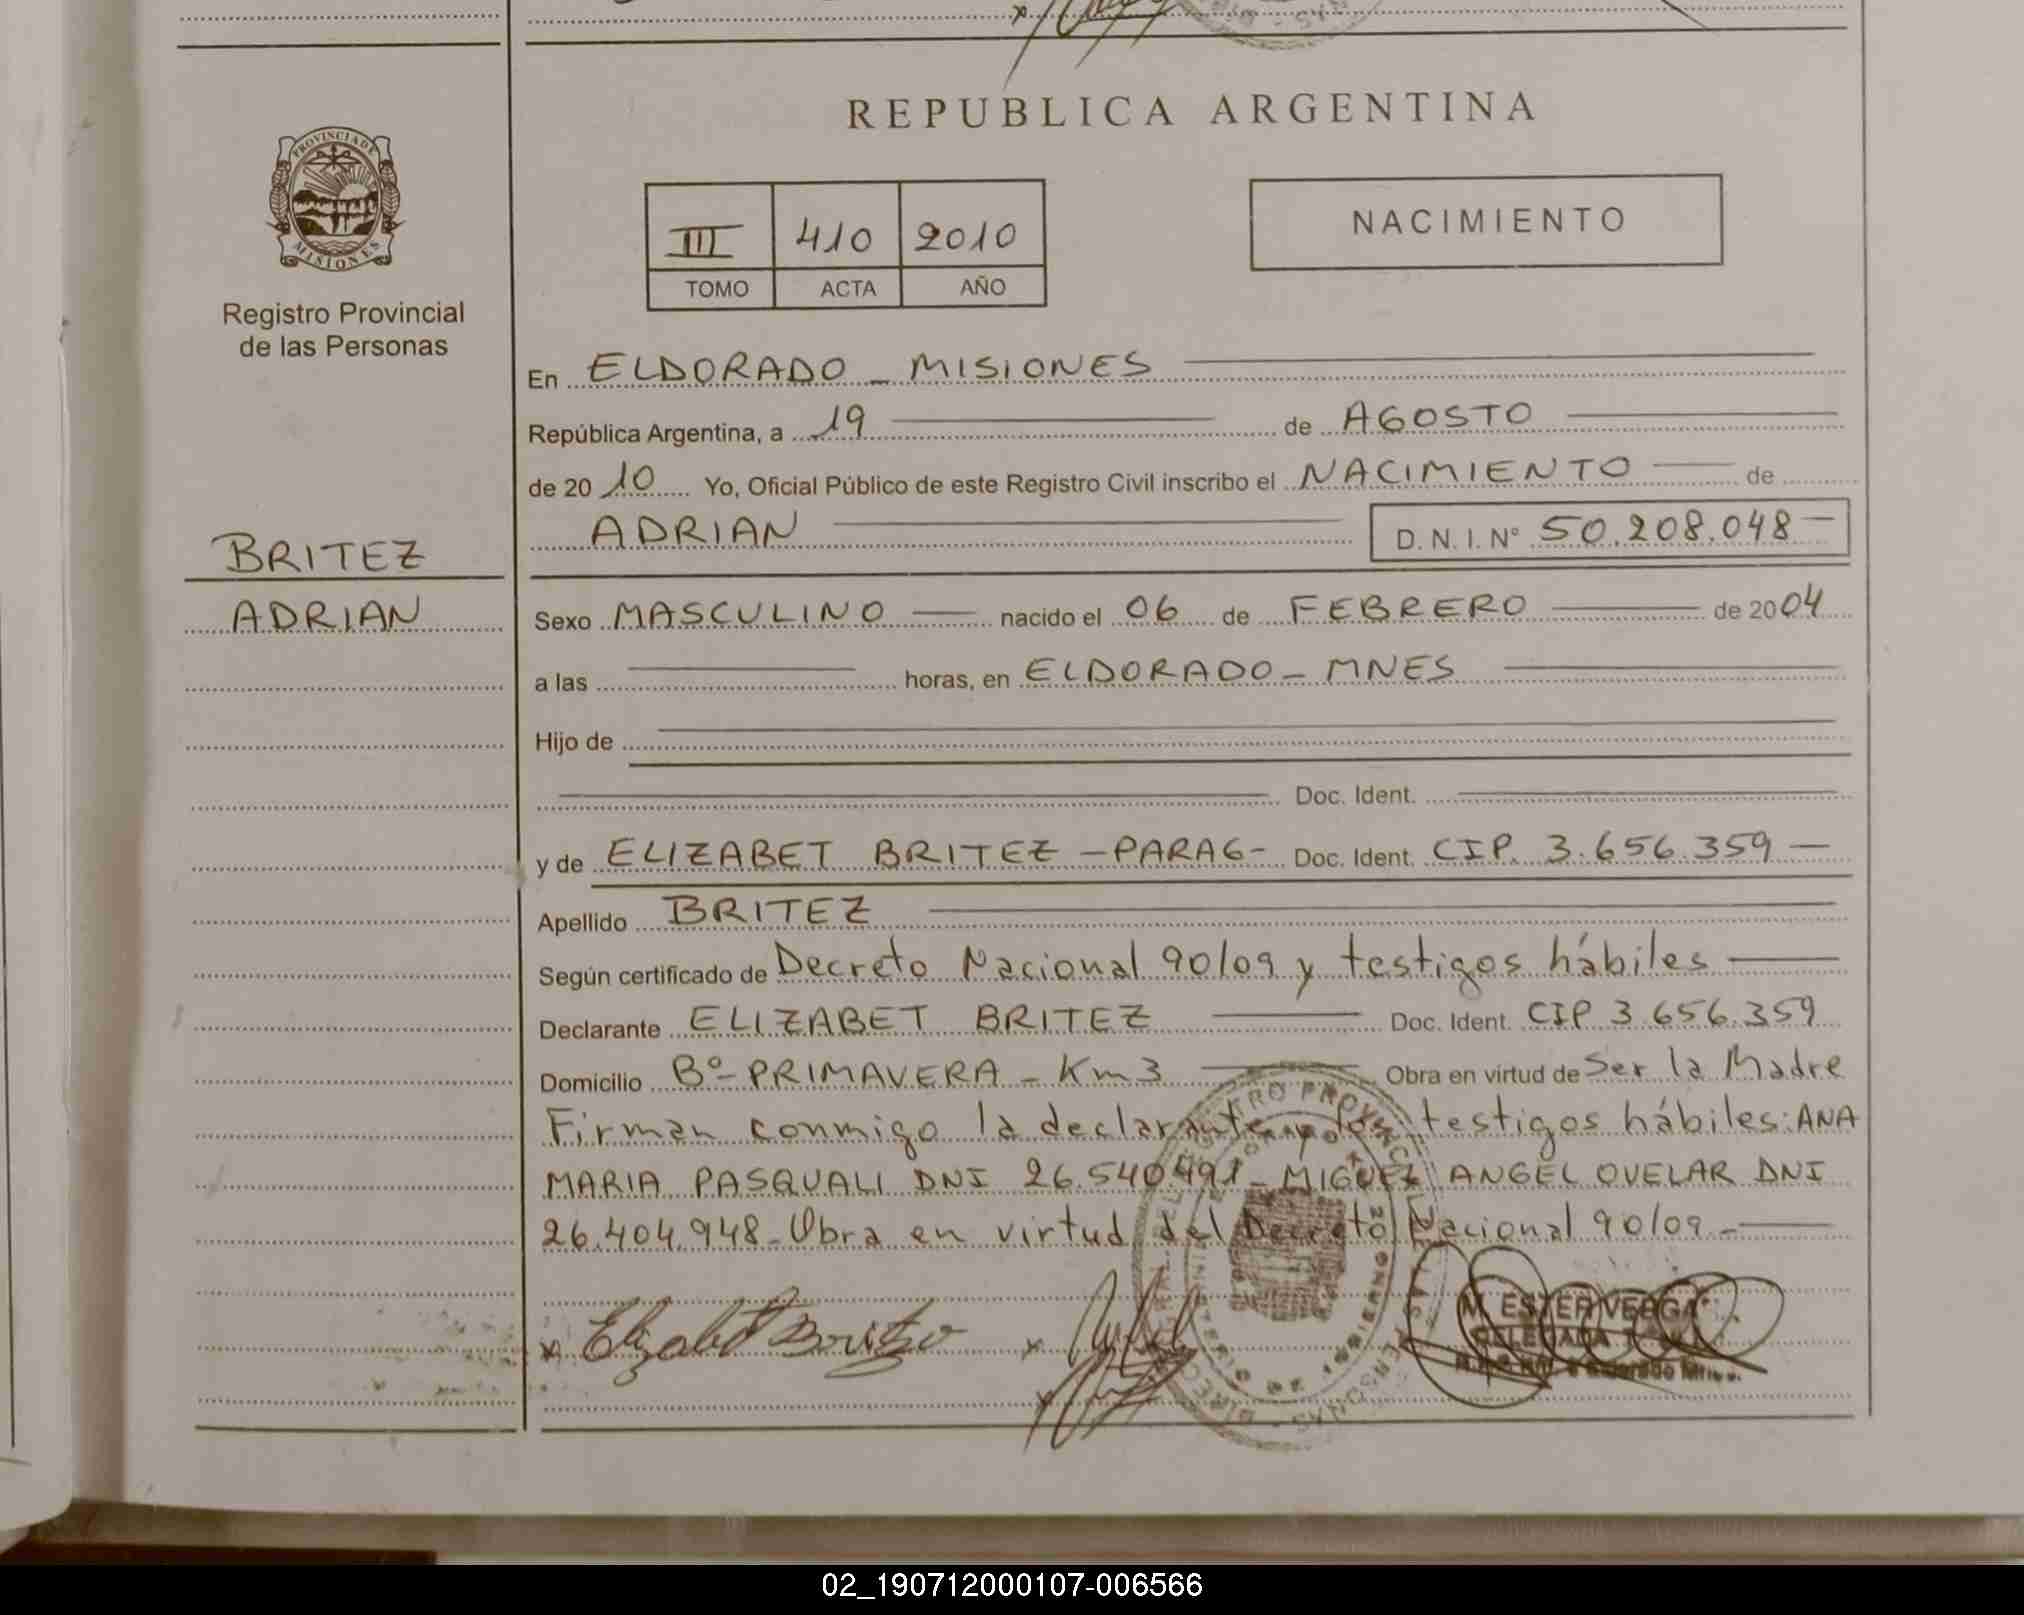 REPUBLICA ARGENTINA
PROVINCIA DE
MISIONES
Registro Provincial
de las Personas
III 410 2010
TOMO ACTA AÑO
NACIMIENTO
En ELDORADO - MISIONES
República Argentina, a 19 de AGOSTO
de 2010 Yo, Oficial Público de este Registro Civil inscribo el NACIMIENTO de
ADRIAN D.N.I. Nº 50.208.048
BRITEZ
ADRIAN
Sexo MASCULINO nacido el 06 de FEBRERO de 2004
a las horas, en ELDORADO - MNES
Hijo de
Doc. Ident.
y de ELIZABET BRITEZ - PARAG- Doc. Ident. CIP. 3.656.359
Apellido BRITEZ
Según certificado de Decreto Nacional 90/09 y testigos hábiles
Declarante ELIZABET BRITEZ Doc. Ident. CIP 3.656.359
Domicilio Bº- PRIMAVERA - Km3 Obra en virtud de Ser la Madre
Firman conmigo la declarante y los testigos hábiles: ANA
MARIA PASQUALI DNI 26.540.491 - MIGUEL ANGEL OVELAR DNI
26.404.948 - Obra en virtud del Decreto Nacional 90/09.-
x Elizabet Britez x
x
M. ESTER VERGA
DELEGADA
02_190712000107-006566